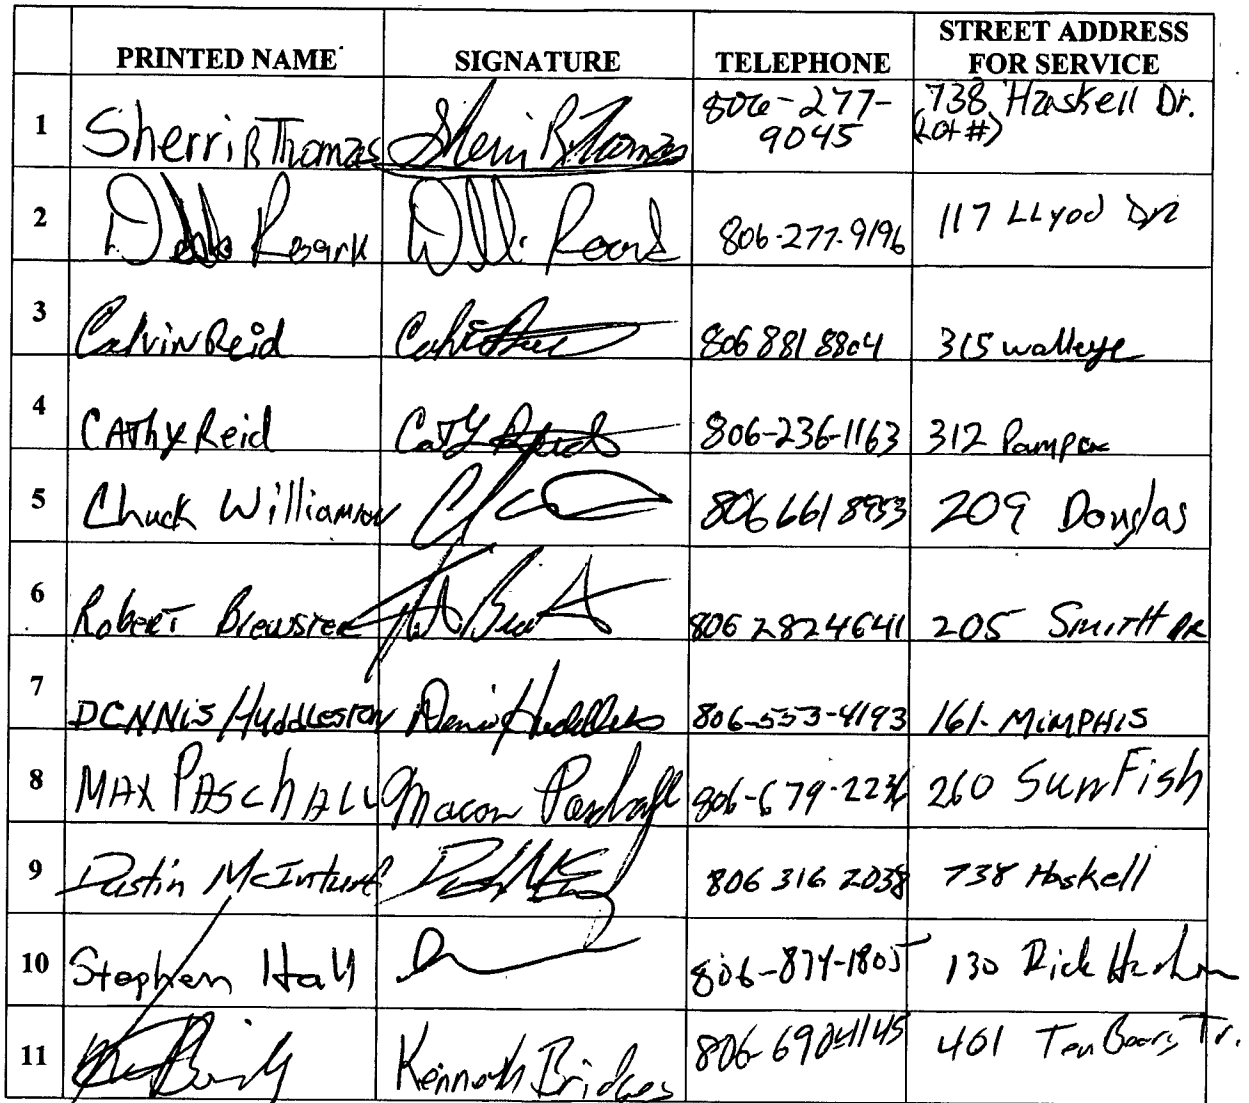 PRINTED NAME SIGNATURE TELEPHONE STREET ADDRESS FOR SERVICE
1 Sherri B Thomas Sherri B Thomas 806-277-9045 738 Haskell Dr. (Lot #)
2 806-277-9196 117 LLyod Dr
3 Calvin Reid 806 881 8804 315 walleye
4 CAThy Reid Cathy Reid 806-236-1163 312 Pampa
5 Chuck Williamson 806 661 8953 209 Douglas
6 Robert Brewster 806 282 4641 205 SmitH DR
7 DENNis Huddleston Dennis Huddleston 806-553-4193 161- MiMPHiS
8 MAX PASchALL Macon Paschall 806-679-2236 260 SunFish
9 Dustin McInturf 806 316 2038 738 Haskell
10 Stephen Hall 806-874-1805 130 Dick
11 Kenneth Bridges 401 Ten Bears Tr.